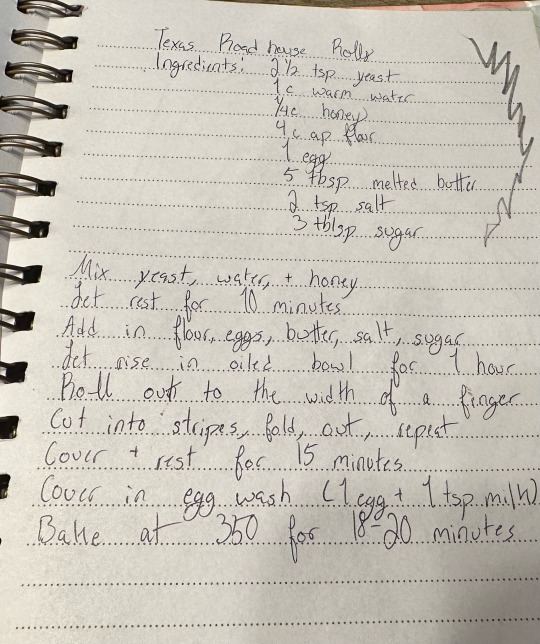 Texas Road house Rolls
Ingredients: 2 1/2 tsp yeast
1 c warm water
1/4c honey
4 c ap flour
1 egg
5 tbsp melted butter
2 tsp salt
3 tblsp sugar
Mix yeast, water, + honey
Let rest for 10 minutes
Add in flour, eggs, butter, salt, sugar
Let rise in oiled bowl for 1 hour
Roll out to the width of a finger
Cut into stripes, fold, cut, repeat
Cover + rest for 15 minutes
Cover in egg wash (1 egg + 1 tsp milk)
Bake at 350 for 18-20 minutes